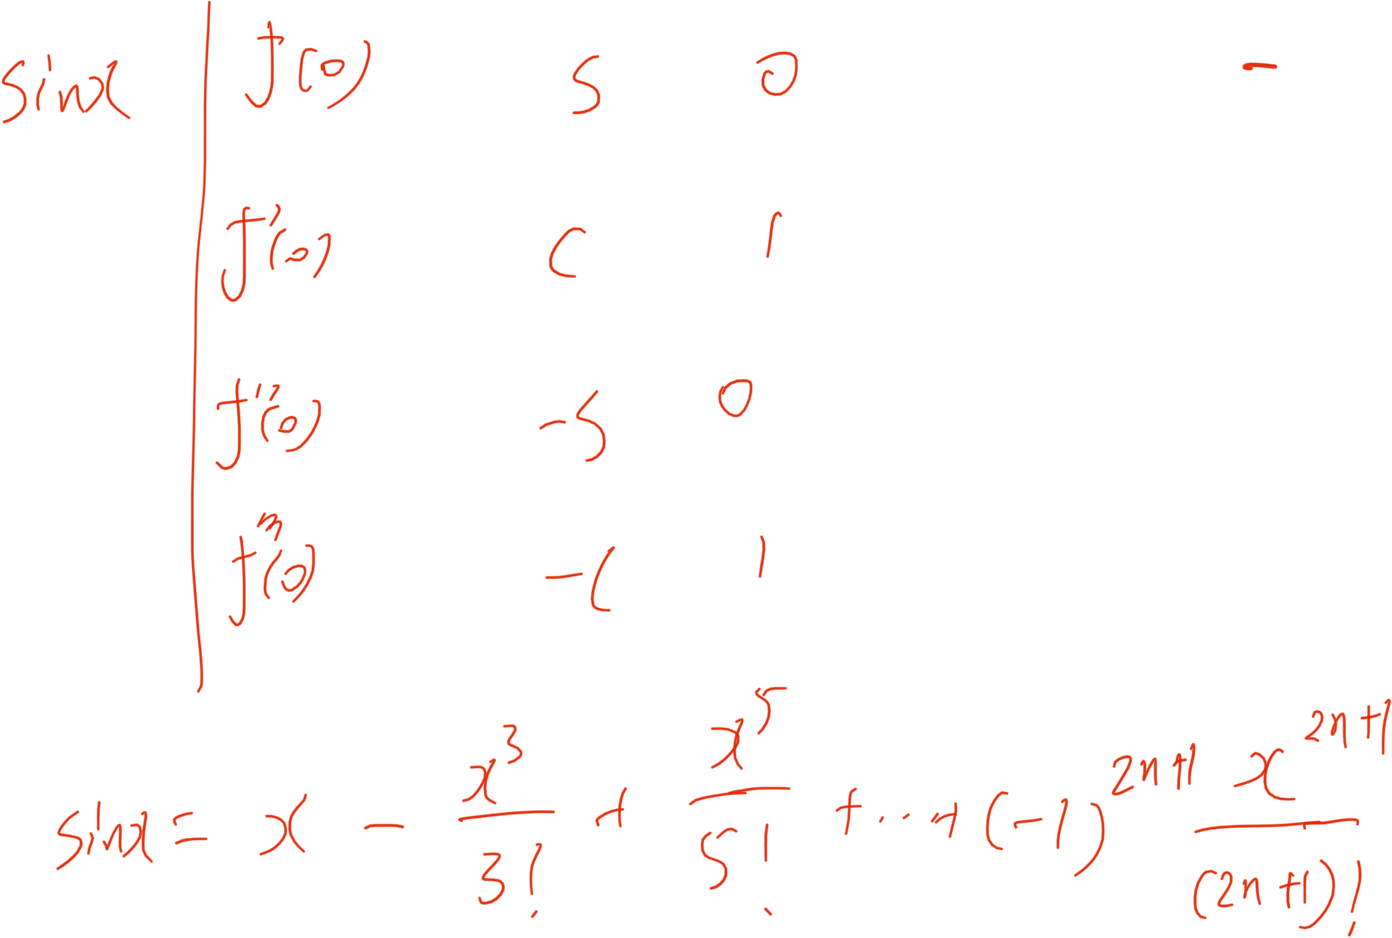 sinx f(0) s 0 -
f'(0) c 1
f''(0) -s 0
f'''(0) -c 1
sinx = x - x^3/3! + x^5/5! + ... + (-1)^{2n+1} x^{2n+1}/(2n+1)!